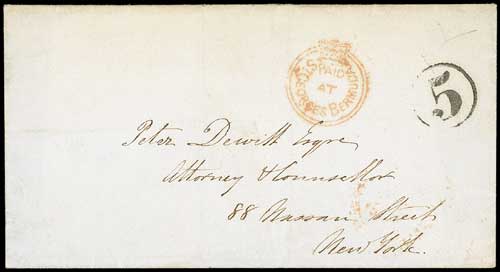 PAID
AT
ST GEORGES BERMUDA
5
Peter Dewitt Esqre
Attorney & Counsellor
88 Nassau Street
New York.